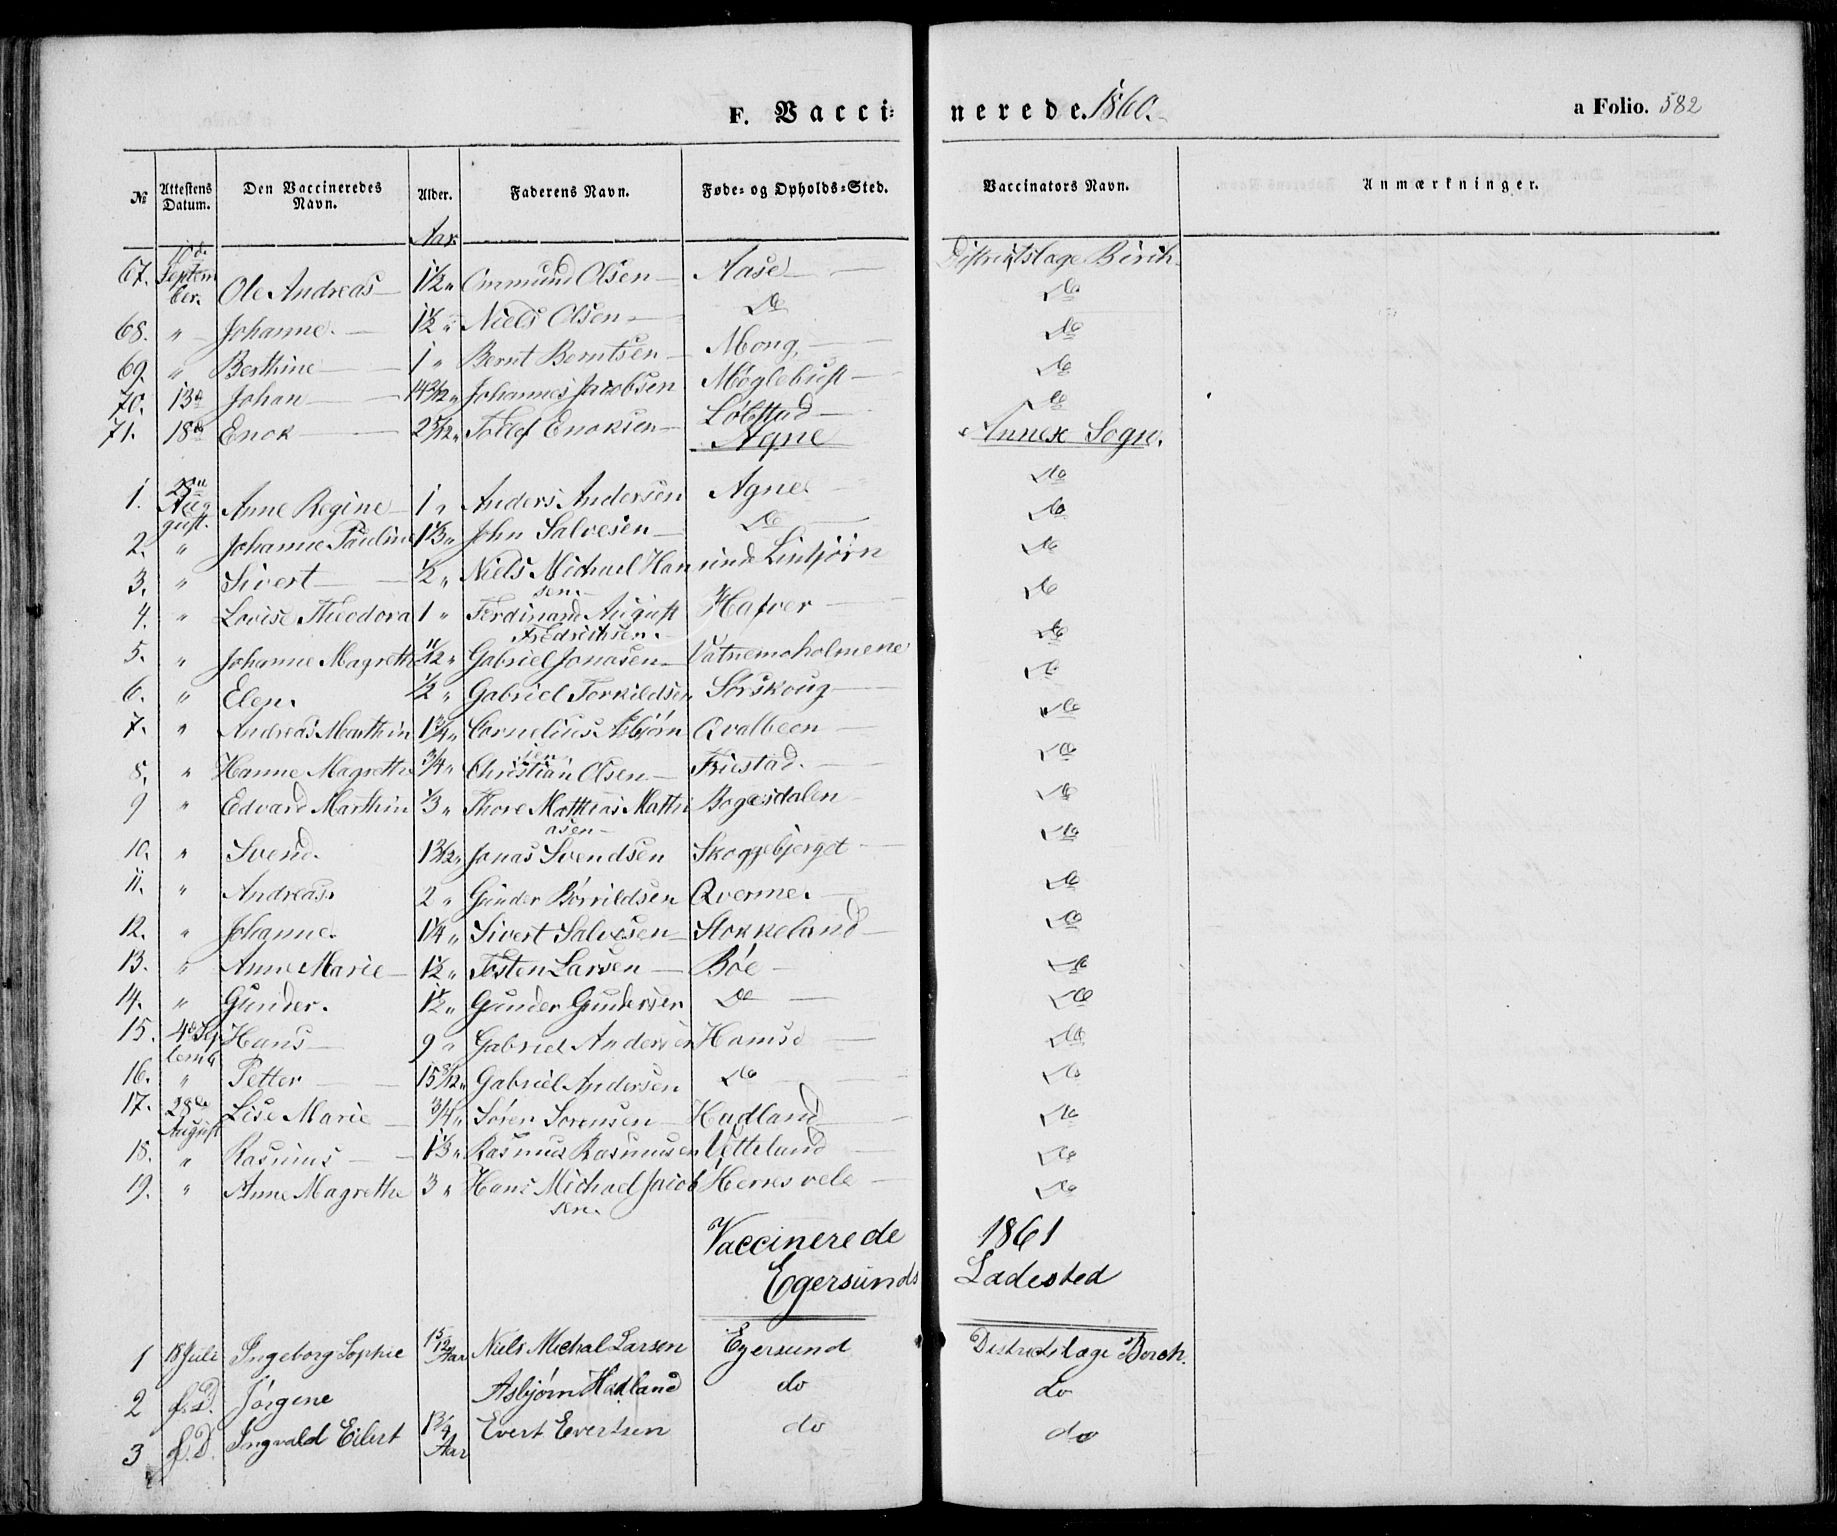 F. Vaccinerede 1860. a Folio. 582
№ Attestens Datum. Den Vaccineredes Navn. Alder. Faderens Navn. Føde- og Opholds-Sted. Vaccinators Navn. Anmærkninger.
Aar
67. 11d. September. Ole Andreas 1½ " Ommund Olsen Aase Distriktslæge Birch
68. " Johanne. 1½ " Niels Olsen Do Do
69. " Berthine 1 " Bernt Berntsen Mong Do
70. 13de Johan Johannes Jacobsen Møglebust Do
71. 18de Enok 2 5/12 " Tollef Enoksen Do
Agne Annex Sogn.
1. August. Anne Regine 1 " Anders Andersen Agne Do
2. " Johanne Pauline 1⅓ " John Salvesen Do Do
3. " Sivert ½ " Niels Michael Hansen. Do
4. " Lovise Theodora 1 " Ferdinand August Fredriksen. Hafver Do
5. " Johanne Magrethe 11/12 " Gabriel Jonasen Vatnemoholmene Do
6. " Elen. ½ " Gabriel Torkildsen Sørskoug Do
7. " Andreas Marthin 1¾ " Cornelius Asbjørnsen Qvalbeen Do
8. " Hanne Magrethe ¾ " Christian Olsen Friestad. Do
9 " Edvard Marthin ⅓ " Thore Mathias Mathiasen Bogesdalen Do
10. " Svend. Jonas Svendsen Skoggebjerget Do
11. " Andreas. 2 " Gunder Børrildsen Qverme. Do
12. " Johanne. 1¼ " Sivert Salvesen Stokkeland Do
13. " Anne Marie 1½ " Tosten Larsen Bøe Do
14. " Gunder. 1½ " Gunder Gundersen Do Do
15. 4de Septemb Hans 9 " Gabriel Andersen Hamse Do
16. " Petter Gabriel Andersen Do Do
17. 28de August Lise Marie ¾ " Søren Sorensen Hadland Do
18. " Rasmus 1⅓ " Rasmus Rasmusen Vetteland Do
19. " Anne Magrethe 3 " Hans Michael Jacobsen. Herresvele Do
Vaccinerede 1861
Egersunds Ladested
1 18 Juli Ingeborg Sophie 15/12 Aar Niels Michal Larsen Egersund Distrectslæge Borch.
2 f. D. Jørgene Asbjørn Hadland do do
3 f. D. Ingvald Eilert 1¾ Aar Evert Evertsen do do